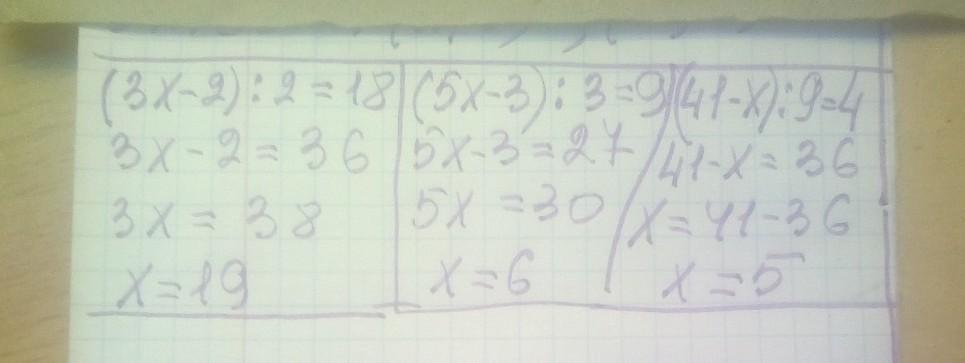 (3x-2):2=18
3x-2=36
3x=38
x=19
(5x-3):3=9
5x-3=27
5x=30
x=6
(41-x):9=4
41-x=36
x=41-36
x=5